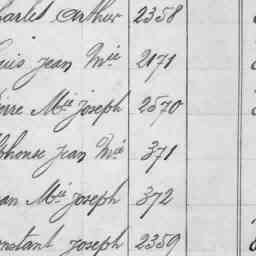 harles Arthur 2358
ouis jean Mie 2171
ierre Mie joseph 2570
phonse jean Mie 371
ean Mie joseph 372
onstant joseph 2359